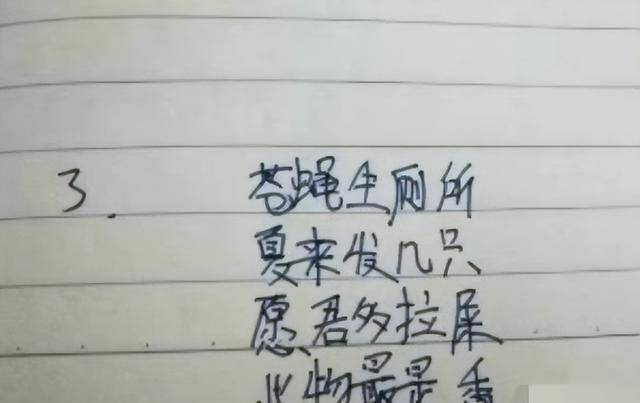 3.
苍蝇生厕所
夏来发几只
愿君多拉屎
此物最是香